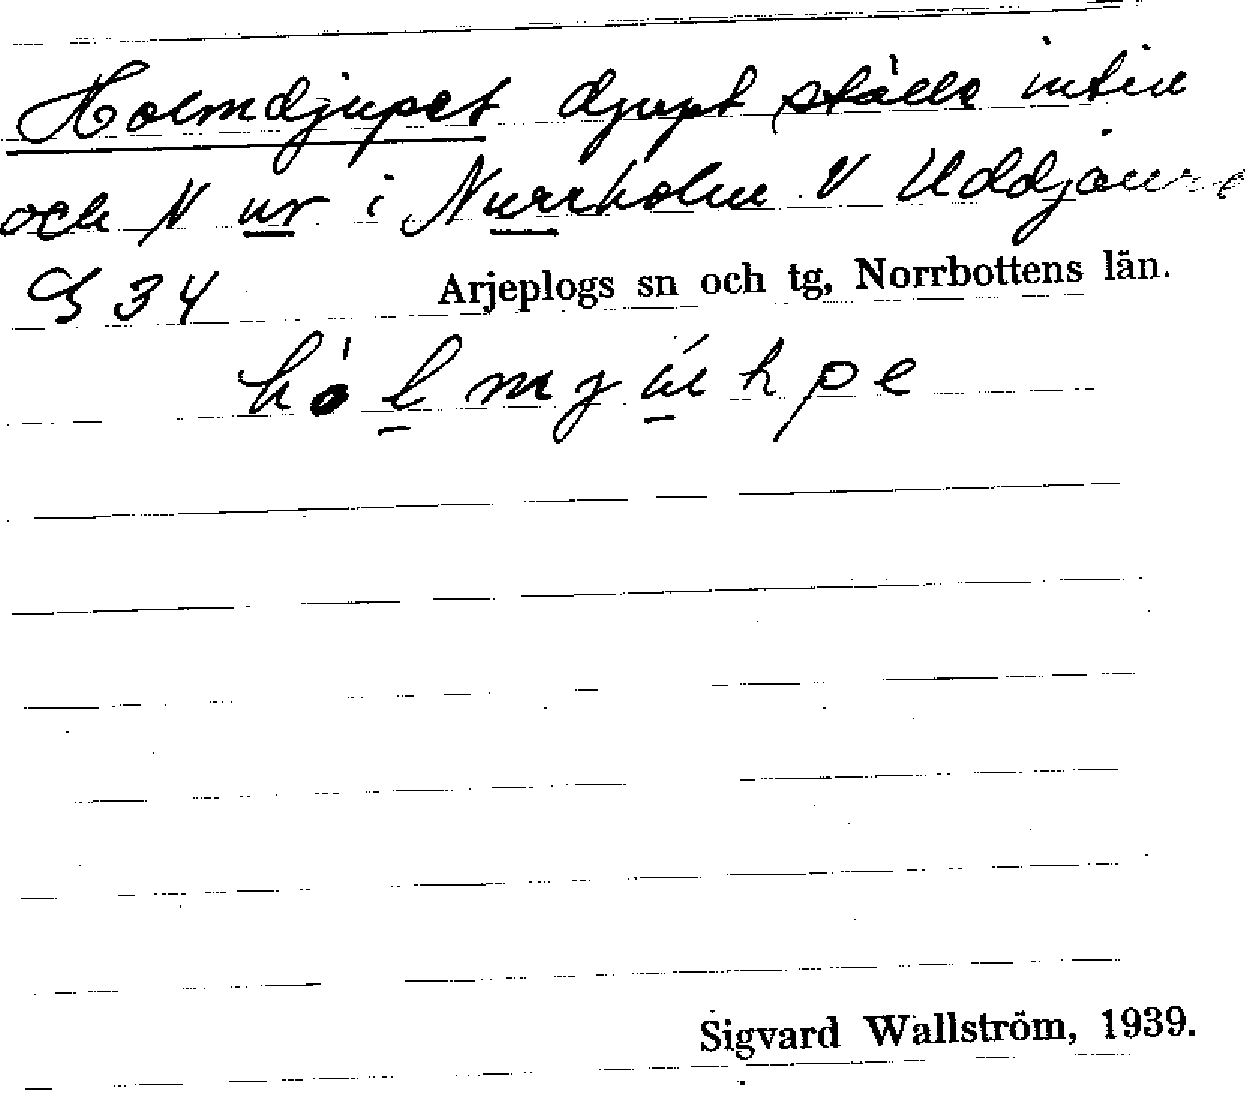 Holmdjupet djupt ställe intill
och N ur i Nurrholm V Uddjaure
S 34 Arjeplogs sn och tg, Norrbottens län.
hólmjúhpe
Sigvard Wallström, 1939.